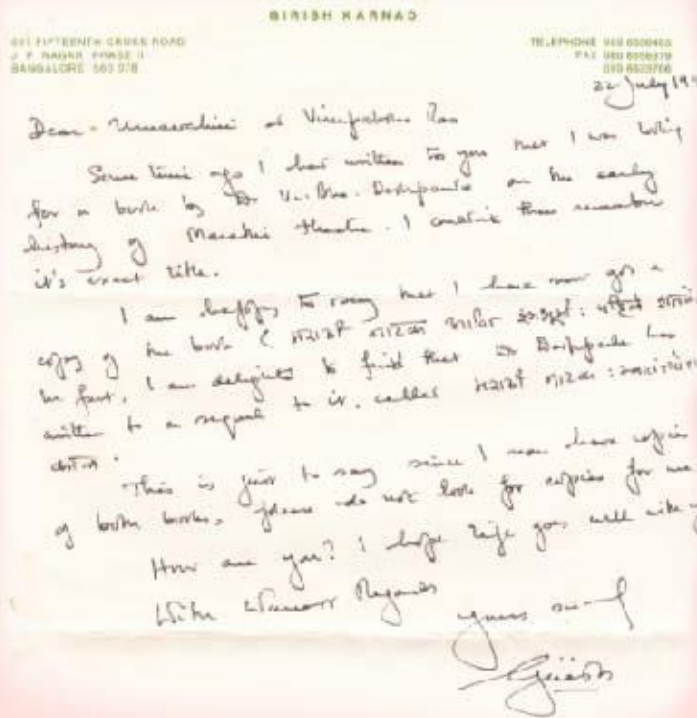 GIRISH KARNAD
697 FIFTEENTH CROSS ROAD
J P NAGAR PHASE II
BANGALORE 560 078
TELEPHONE 080
FAX 080
22 July
Dear Rao
Some time ago I had written to you that I was looking
for a book by Dr Deshpande on the early
history of Marathi theatre. I couldn't then remember
it's exact title.
I am happy to say that I have now got a
copy of the book ( मराठी नाटक आणि
In fact, I am delighted to find that Dr Deshpande has
written to a sequel to it, called मराठी नाटक :
This is just to say since I now have copies
of both books, please do not look for copies for me
How are you? I hope life goes well with
With Warmest Regards
yours
Girish